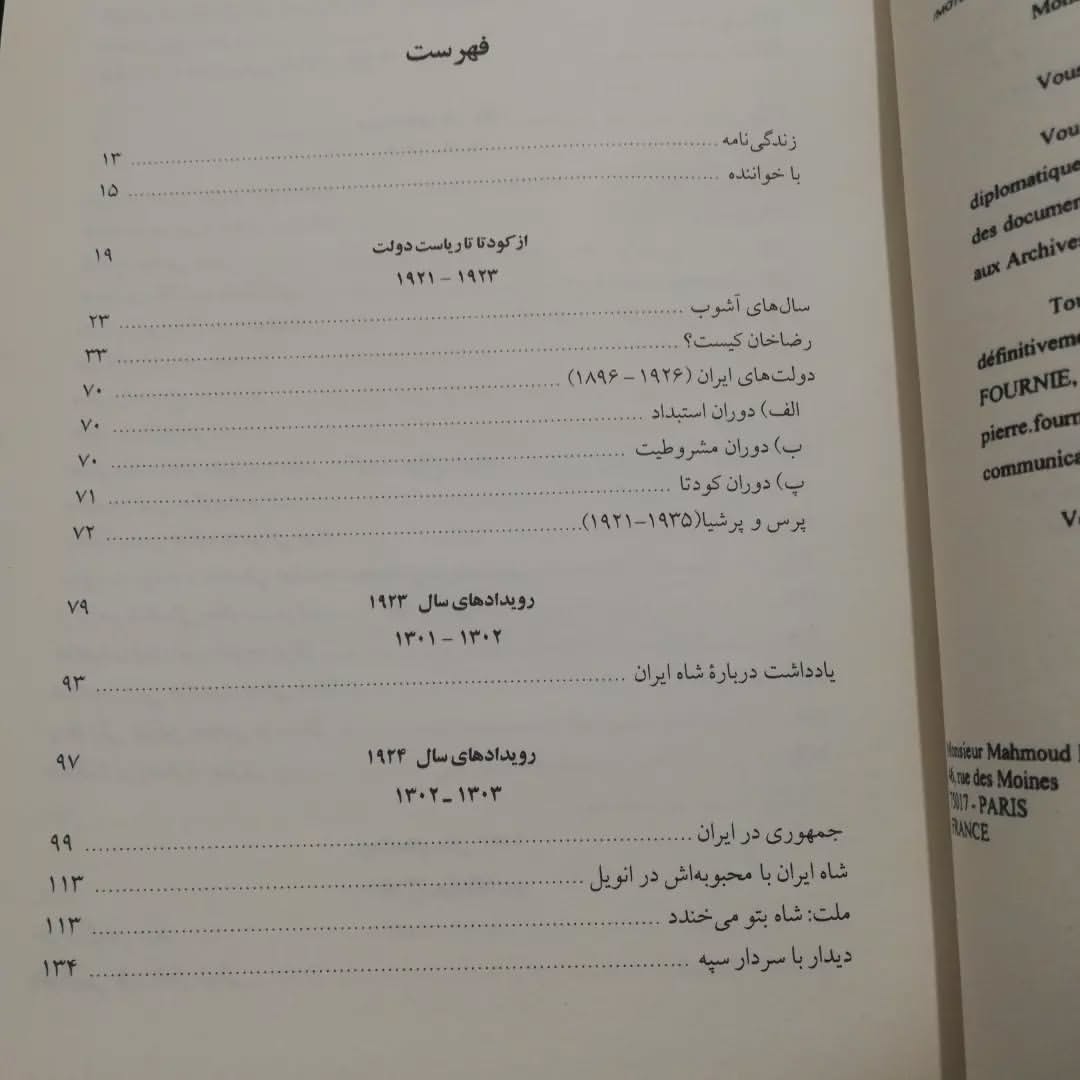 فهرست
زندگی‌نامه ........ ۱۳
با خواننده ........ ۱۵
از کودتا تا ریاست دولت ۱۹
۱۹۲۳ – ۱۹۲۱
سال‌های آشوب ........ ۲۳
رضاخان کیست؟ ........ ۳۳
دولت‌های ایران (۱۹۲۶ – ۱۸۹۶) ........ ۷۰
الف) دوران استبداد ........ ۷۰
ب) دوران مشروطیت ........ ۷۰
پ) دوران کودتا ........ ۷۱
پرس و پرشیا(۱۹۳۵–۱۹۲۱) ........ ۷۲
رویدادهای سال ۱۹۲۳ ۷۹
۱۳۰۲ – ۱۳۰۱
یادداشت دربارهٔ شاه ایران ........ ۹۳
رویدادهای سال ۱۹۲۴ ۹۷
۱۳۰۳ ـ ۱۳۰۲
جمهوری در ایران ........ ۹۹
شاه ایران با محبوبه‌اش در انویل ........ ۱۱۳
ملت: شاه بتو می‌خندد ........ ۱۱۳
دیدار با سردار سپه ........ ۱۳۴
Vous
Vou
diplomatique
des documen
aux Archive
Tou
définitiveme
FOURNIE,
pierre.fourn
communica
Monsieur Mahmoud
46, rue des Moines
75017 - PARIS
FRANCE